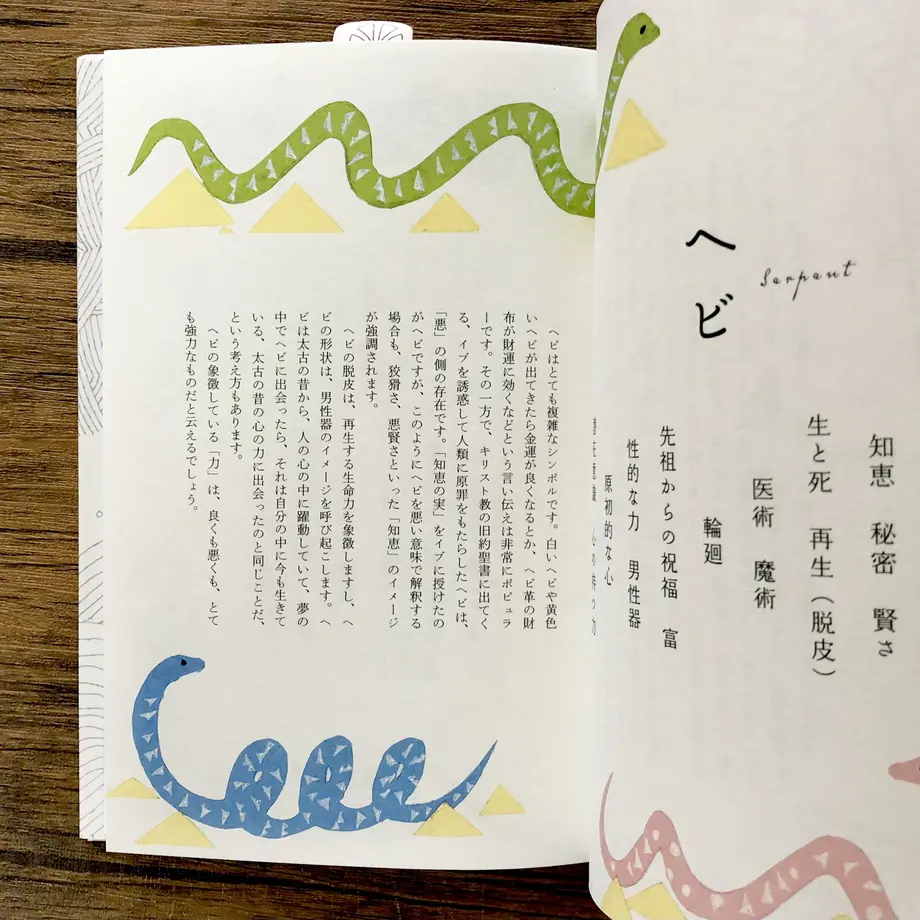 ヘビ
Serpent
知恵　秘密　賢さ
生と死　再生（脱皮）
医術　魔術
輪廻
先祖からの祝福　富
性的な力　男性器
原初的な心
ヘビはとても複雑なシンボルです。白いヘビや黄色
いヘビが出てきたら金運が良くなるとか、ヘビ革の財
布が財運に効くなどという言い伝えは非常にポピュラ
ーです。その一方で、キリスト教の旧約聖書に出てく
る、イブを誘惑して人類に原罪をもたらしたヘビは、
「悪」の側の存在です。「知恵の実」をイブに授けたの
がヘビですが、このようにヘビを悪い意味で解釈する
場合も、狡猾さ、悪賢さといった「知恵」のイメージ
が強調されます。
ヘビの脱皮は、再生する生命力を象徴しますし、ヘ
ビの形状は、男性器のイメージを呼び起こします。ヘ
ビは太古の昔から、人の心の中に躍動していて、夢の
中でヘビに出会ったら、それは自分の中に今も生きて
いる、太古の昔の心の力に出会ったのと同じことだ、
という考え方もあります。
ヘビの象徴している「力」は、良くも悪くも、とて
も強力なものだと云えるでしょう。